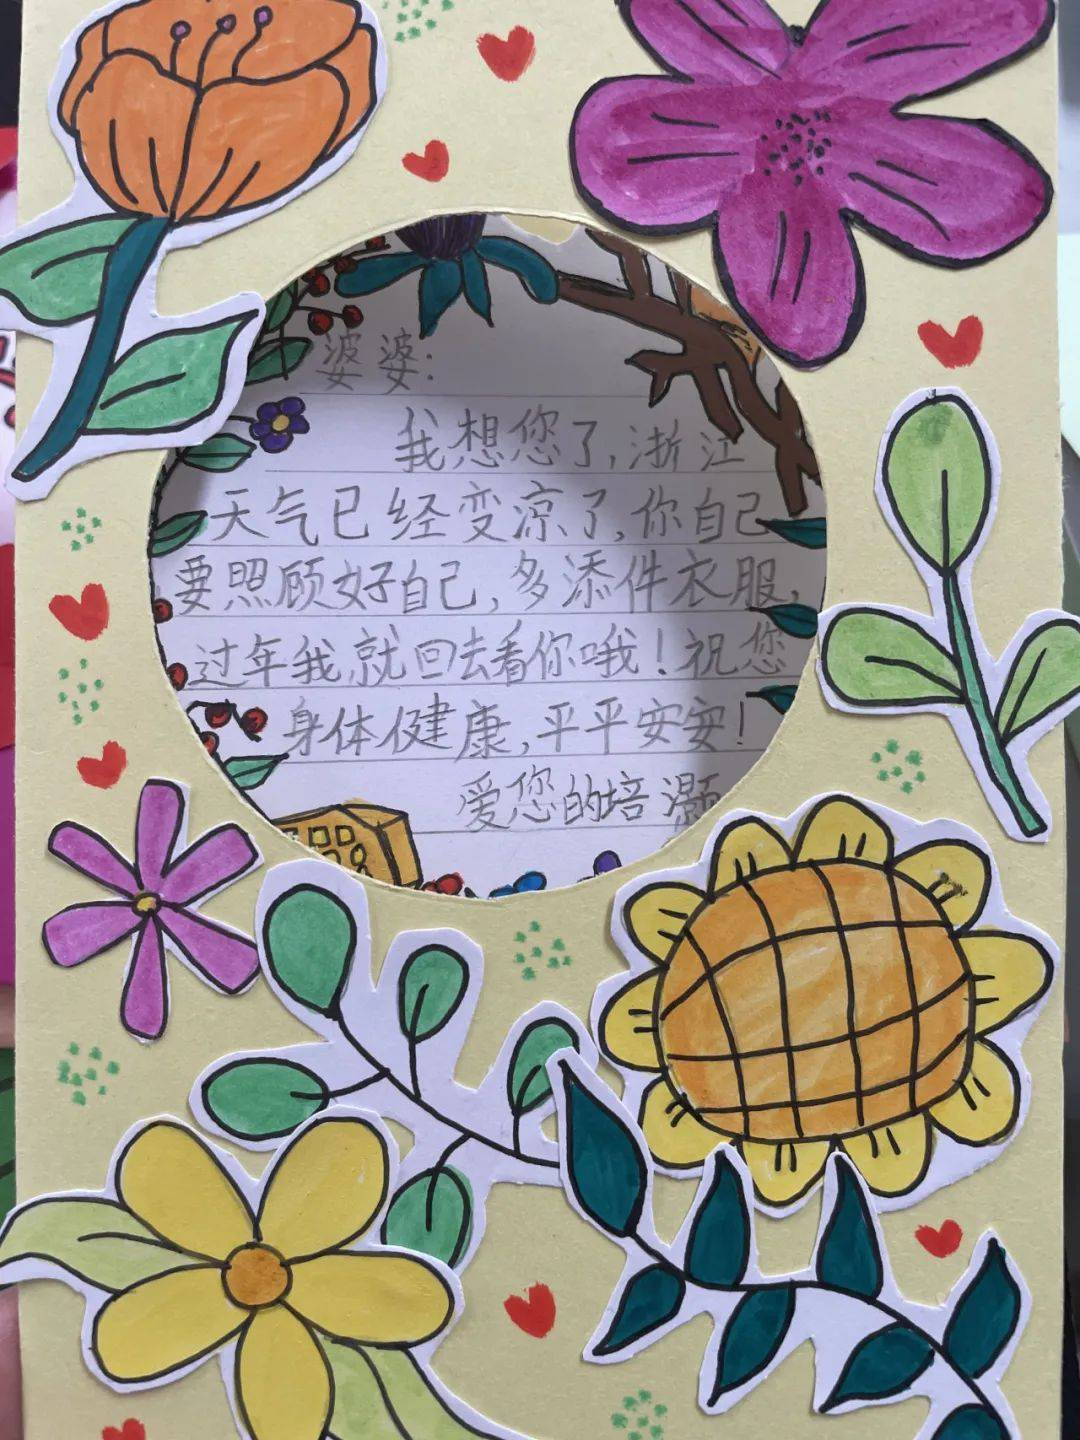 婆婆：
我想您了，浙江
天气已经变凉了，你自己
要照顾好自己，多添件衣服，
过年我就回去看你哦！祝您
身体健康，平平安安！
爱您的培灏